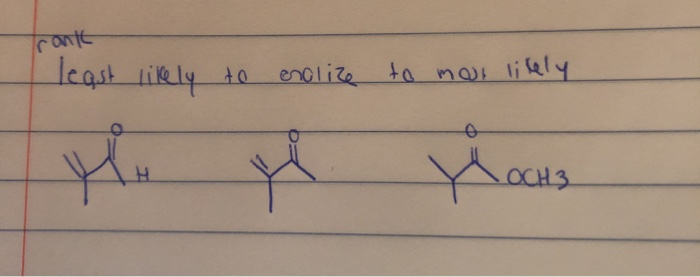 rank
least likely to enolize to most likely
O O O
H OCH3